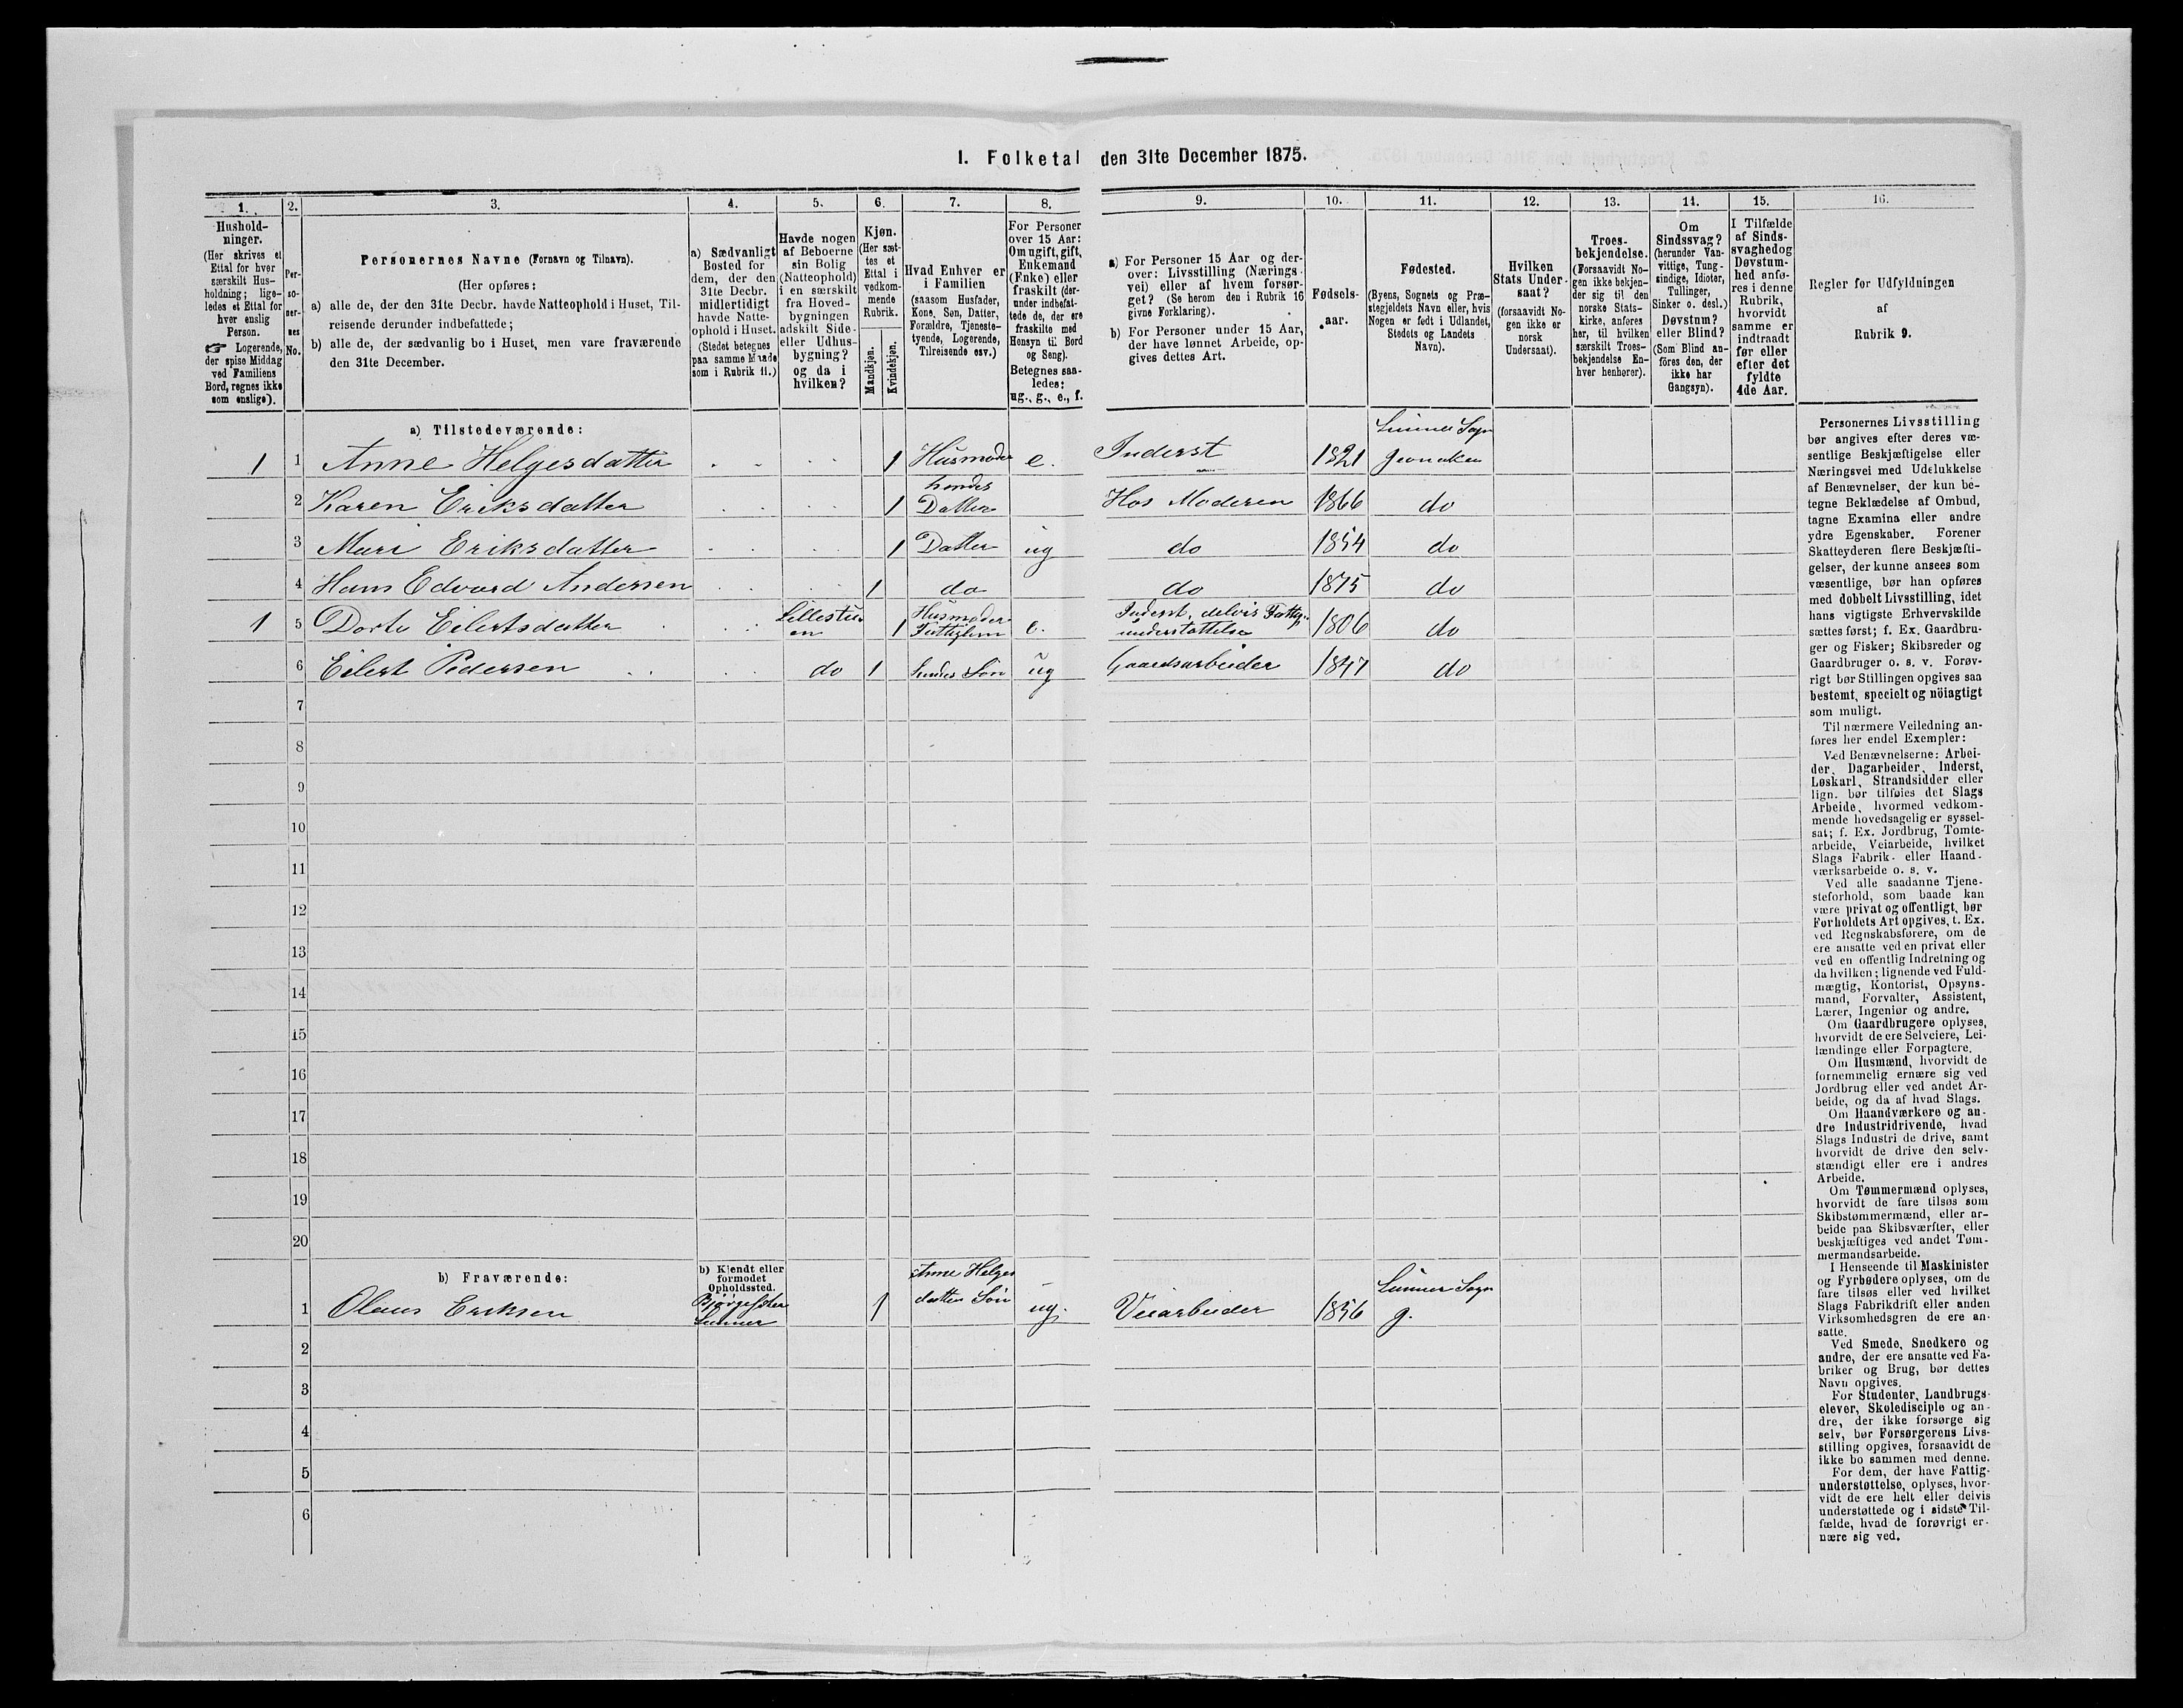 I. Folketal den 31te December 1875.
1. 2. 3. 4. 5. 6. 7. 8. 9. 10. 11. 12. 13. 14. 15. 16.
Hushold-
ninger.
(Her skrives et
Ettal for hver
særskilt Hus-
holdning; lige-
ledes et Ettal for
hver enslig
Person.
☞ Logerende,
der spise Middag
ved Familiens
Bord, regnes ikke
som enslige).
Per-
so-
ner-
nes
No.
Personernes Navne (Fornavn og Tilnavn).
(Her opføres:
a) alle de, der den 31te Decbr. havde Natteophold i Huset, Til-
reisende derunder indbefattede;
b) alle de, der sædvanlig bo i Huset, men vare fraværende
den 31te December.
a) Sædvanligt
Bosted for
dem, der den
31te Decbr.
midlertidigt
havde Natte-
ophold i Huset.
(Stedet betegnes
paa samme Maade
som i Rubrik 11.)
Havde nogen
af Beboerne
sin Bolig
(Natteophold)
i en særskilt
fra Hoved-
bygningen
adskilt Side-
eller Udhus-
bygning?
og da i
hvilken?
Kjøn.
(Her sæt-
tes et
Ettal i
vedkom-
mende
Rubrik.
Mandkjøn.
Kvindekjøn.
Hvad Enhver er
i Familien
(saasom Husfader,
Kone, Søn, Datter,
Forældre, Tjeneste-
tyende, Logerende,
Tilreisende osv.)
For Personer
over 15 Aar:
Om ugift, gift,
Enkemand
(Enke) eller
fraskilt (der-
under indbefat-
tede de, der ere
fraskilte med
Hensyn til Bord
og Seng).
Betegnes saa-
ledes:
ug., g., e., f.
a) For Personer 15 Aar og der-
over: Livsstilling (Nærings-
vei) eller af hvem forsør-
get? (Se herom den i Rubrik 16
givne Forklaring).
b) For Personer under 15 Aar,
der have lønnet Arbeide, op-
gives dettes Art.
Fødsels-
aar.
Fødested.
(Byens, Sognets og Præ-
stegjeldets Navn eller, hvis
Nogen er født i Udlandet,
Stedets og Landets
Navn).
Hvilken
Stats Under-
saat?
(forsaavidt No-
gen ikke er
norsk
Undersaat).
Troes-
bekjendelse.
(Forsaavidt No-
gen ikke bekjen-
der sig til den
norske Stats-
kirke, anføres
her, til hvilken
særskilt Troes-
bekjendelse En-
hver henhører).
Om
Sindssvag?
(herunder Van-
vittige, Tung-
sindige, Idioter,
Tullinger,
Sinker o. desl.)
Døvstum?
eller Blind?
(Som Blind an-
føres den, der
ikke har
Gangsyn).
I Tilfælde
af Sinds-
svaghed og
Døvstum-
hed anfø-
res i denne
Rubrik,
hvorvidt
samme er
indtraadt
før eller
efter det
fyldte
4de Aar.
Regler for Udfyldningen
af
Rubrik 9.
a) Tilstedeværende:
1 1 Anne Helgesdatter 1 Husmoder e. Inderst 1821 Lunner Sogn
2 Karen Eriksdatter 1 hendes Datter Hos Moderen 1866 do
3 Mari Eriksdatter 1 Datter ug do 1854 do
4 Hans Edvard Andersen 1 do do 1875 do
1 5 Dorte Eilertsdatter Lillestuen 1 Husmoder Fattiglem e. Inderst, delvis Fattig- understøttelse 1806 do
6 Eilert Pedersen do 1 hendes Søn ug Gaardsarbeider 1847 do
7
8
9
10
11
12
13
14
15
16
17
18
19
20
b) Fraværende:
b) Kjendt eller
formodet
Opholdssted.
1 Olaus Eriksen Lunner 1 Anne Helges datters Søn ug. Veiarbeider 1856 Lunner Sogn g.
2
3
4
5
6
Personernes Livsstilling
bør angives efter deres væ-
sentlige Beskjæftigelse eller
Næringsvei med Udelukkelse
af Benævnelser, der kun be-
tegne Beklædelse af Ombud,
tagne Examina eller andre
ydre Egenskaber. Forener
Skatteyderen flere Beskjæfti-
gelser, der kunne ansees som
væsentlige, bør han opføres
med dobbelt Livsstilling, idet
hans vigtigste Erhvervskilde
sættes først; f. Ex. Gaardbru-
ger og Fisker; Skibsreder og
Gaardbruger o. s. v. Forøv-
rigt bør Stillingen opgives saa
bestemt, specielt og nöiagtigt
som muligt.
Til nærmere Veiledning an-
føres her endel Exempler:
Ved Benævnelserne: Arbei-
der, Dagarbeider, Inderst,
Løskarl, Strandsidder eller
lign. bør tilføies det Slags
Arbeide, hvormed vedkom-
mende hovedsagelig er syssel-
sat; f. Ex. Jordbrug, Tomte-
arbeide, Veiarbeide, hvilket
Slags Fabrik- eller Haand-
værksarbeide o. s. v.
Ved alle saadanne Tjene-
steforhold, som baade kan
være privat og offentligt, bør
Forholdets Art opgives, t. Ex.
ved Regnskabsførere, om de
ere ansatte ved en privat eller
ved en offentlig Indretning og
da hvilken; lignende ved Fuld-
mægtig, Kontorist, Opsyns-
mand, Forvalter, Assistent,
Lærer, Ingeniør og andre.
Om Gaardbrugere oplyses,
hvorvidt de ere Selveiere, Lei-
lændinge eller Forpagtere.
Om Husmænd, hvorvidt de
fornemmelig ernære sig ved
Jordbrug eller ved andet Ar-
beide, og da af hvad Slags.
Om Haandværkere og an-
dre Industridrivende, hvad
Slags Industri de drive, samt
hvorvidt de drive den selv-
stændigt eller ere i andres
Arbeide.
Om Tømmermænd oplyses,
hvorvidt de fare tilsøs som
Skibstømmermænd, eller ar-
beide paa Skibsværfter, eller
beskjæftiges ved andet Tøm-
mermandsarbeide.
I Henseende til Maskinister
og Fyrbødere oplyses, om de
fare tilsøs eller ved hvilket
Slags Fabrikdrift eller anden
Virksomhedsgren de ere an-
satte.
Ved Smede, Snedkere og
andre, der ere ansatte ved Fa-
briker og Brug, bør dettes
Navn opgives.
For Studenter, Landbrugs-
elever, Skoledisciple og an-
dre, der ikke forsørge sig
selv, bør Forsørgerens Livs-
stilling opgives, forsaavidt de
ikke bo sammen med denne.
For dem, der have Fattig-
understøttelse, oplyses, hvor-
vidt de ere helt eller delvis
understøttede og i sidste Til-
fælde, hvad de forøvrigt er-
nære sig ved.